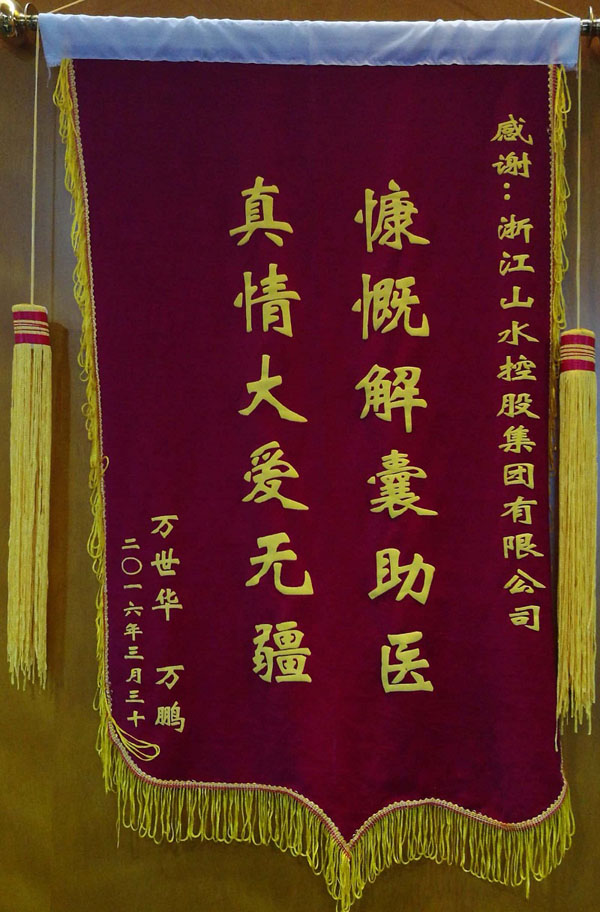 感谢：浙江山水控股集团有限公司
慷慨解囊助医
真情大爱无疆
万世华 万鹏
二〇一六年三月三十